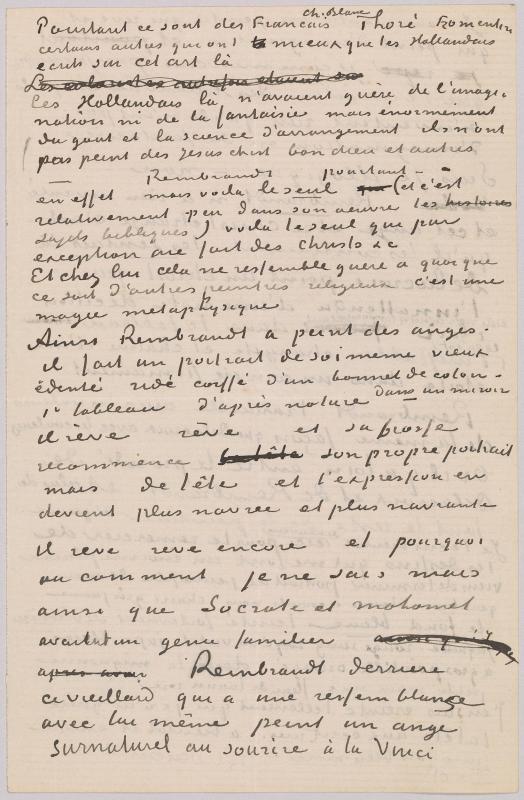 Pourtant ce sont des Francais Ch. Blanc Thoré Fromentin
certains autres qui ont mieux que les Hollandais
ecrit sur cet art là
Les Hollandais là, n'avaient guère de l'imagi-
nation ni de la fantaisie mais énormement
du gout et la science d'arrangement ils n'ont
pas peint des Jesus christ bon dieu et autres
Rembrandt pourtant –
en effet mais voila le seul (et c'est
relativement peu dans son oeuvre les histoires
sujets bibliques) voila le seul qui par
exception aie fait des Christs &c
Et chez lui cela ne ressemble guère a quoi que
ce soit d'autres peintres religieux c'est une
magie metaphysique
Ainsi Rembrandt a peint des anges.
il fait un portrait de soi meme vieux
édenté ridé coiffé d'un bonnet de coton –
1er tableau d'après nature dans un miroir
il rève rève et sa brosse
recommence son propre portrait
mais de tête et l'expression en
devient plus navrée et plus navrante
il reve reve encore et pourquoi
ou comment je ne sais mais
ainsi que Socrate et mahomet
avaient un genie familier
Rembrandt derriere
ce vieillard qui a une ressemblance
avec lui même peint un ange
surnaturel au sourire à la Vinci